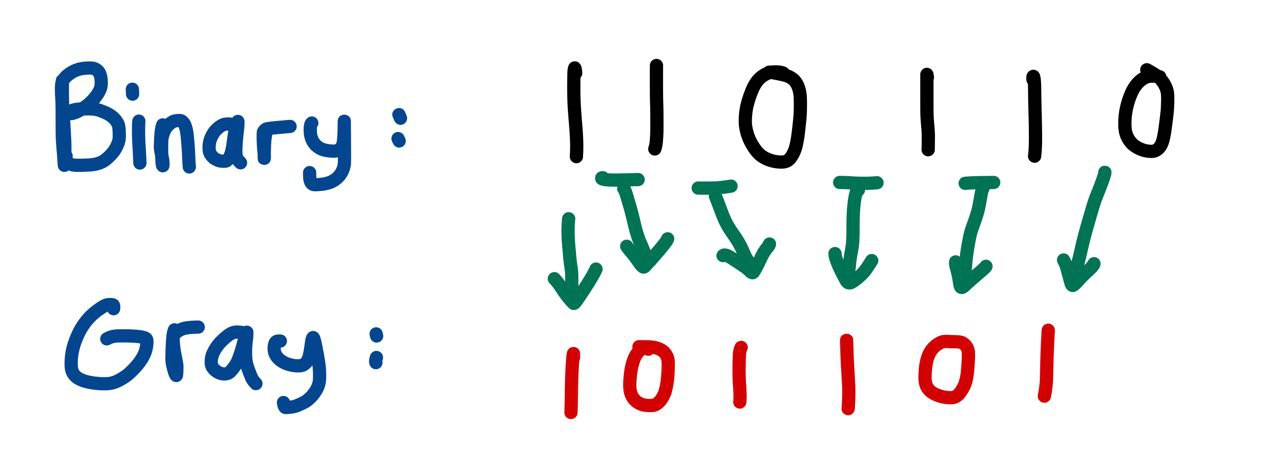 Binary : 1 1 0 1 1 0
Gray : 1 0 1 1 0 1